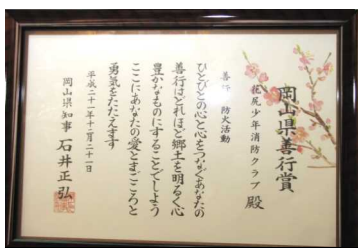 岡山県善行賞
花尻少年消防クラブ 殿
善行 防火活動
ひとびとの心と心をつなぐあなたの
善行はどれほど郷土を明るく心
豊かなものにすることでしょう
ここにあなたの愛とまごころと
勇気をたたえます
平成二十一年十二月二十一日
岡山県知事 石井正弘